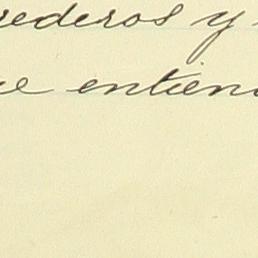 rederos y
ue entien